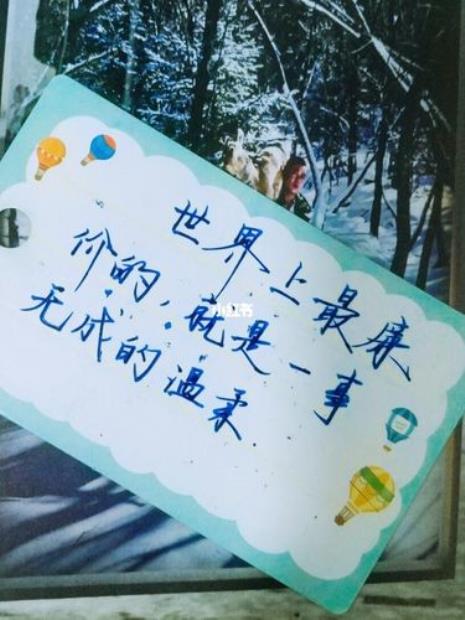 世界上最廉
价的，就是一事
无成的温柔
小红书